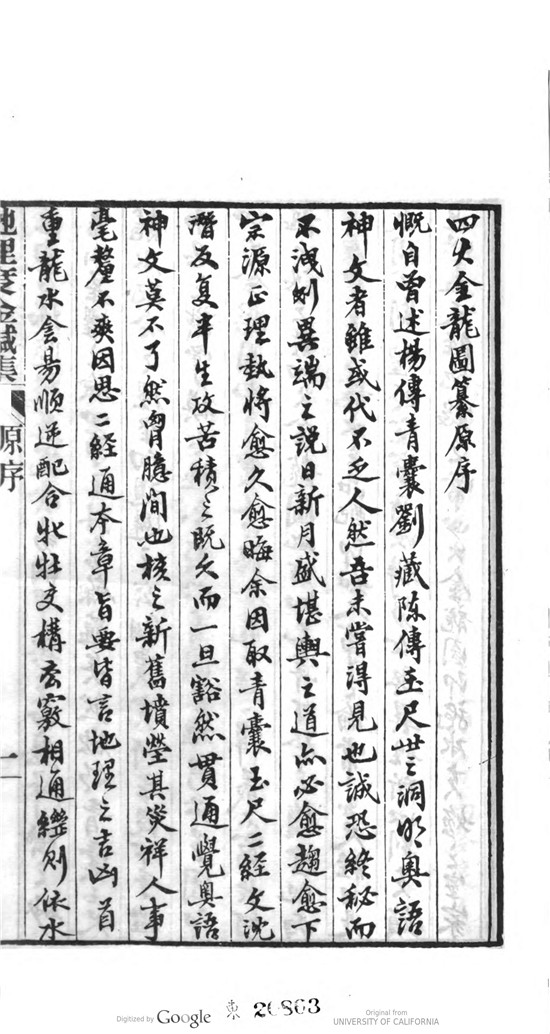 四大金龍圖纂原序
慨自曾述楊傳青囊劉藏陳傳玉尺世之洞明奧語
神文者雖或代不乏人然吾未嘗得見也誠恐終秘而
不洩則異端之說日新月盛堪輿之道亦必愈趨愈下
宗源正理執將愈久愈晦余因取青囊玉尺二經文沈
潛反复半生攻苦積之既久而一旦豁然貫通覺奧語
神文莫不了然胷臆間也核之新舊墳塋其災祥人事
毫釐不爽因思二經通本章旨要皆言地理之吉凶首
重龍水侌昜順逆配合牝牡交構玄竅相通縱則依水
地理 金 集 原序 二
Digitized by Google
東 26863
Original from
UNIVERSITY OF CALIFORNIA